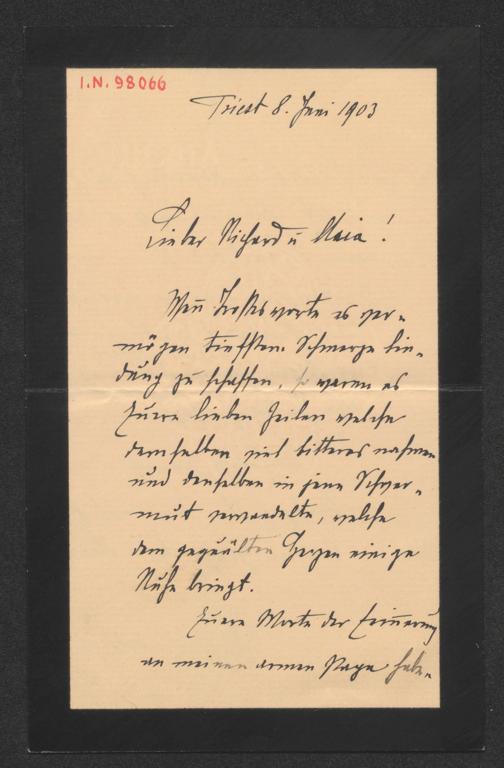 I.N. 98066
Triest 8. Juni 1903
Lieber Richard u Maia!
Wen̄ Trostesworte es ver-
mögen tiefsten Schmerze Lin-
dung zu schaffen, so waren es
Euere lieben Zeilen welche
demselben viel bitteres nahmen
und denselben in jene Schwer-
mut verwandelte, welche
dem gequälten Herzen einige
Ruhe bringt.
Euere Worte der Erin̄erung
an meinen armen Papa habe-